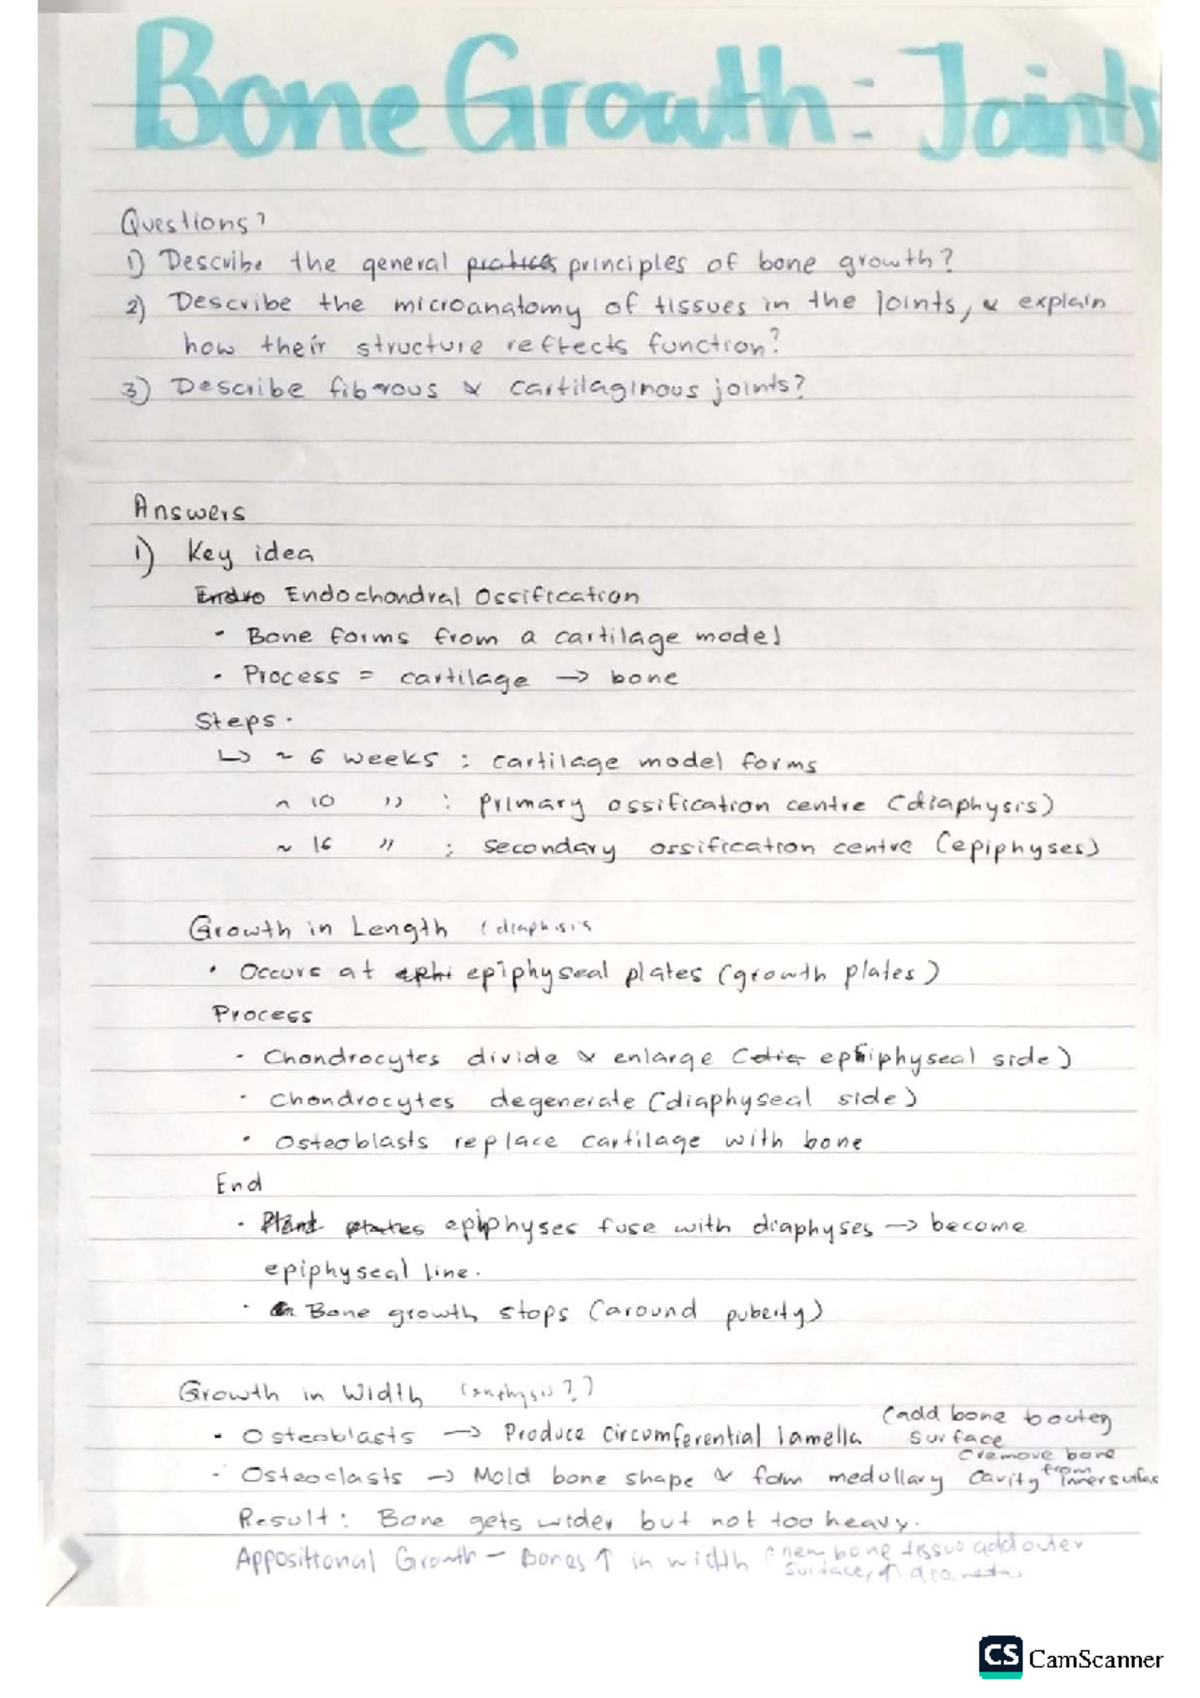 Bone Growth: Joints
Questions?
1) Describe the general pratices principles of bone growth?
2) Describe the microanatomy of tissues in the joints, & explain
how their structure reflects function?
3) Describe fibrous & cartilaginous joints?
Answers
1) Key idea
Endro Endochondral Ossification
• Bone forms from a cartilage model
• Process = cartilage → bone
Steps.
↳ ~ 6 weeks : cartilage model forms
~ 10 " : primary ossification centre (diaphysis)
~ 16 " : secondary ossification centre (epiphyses)
Growth in Length (diaphisis
• Occurs at ephi epiphyseal plates (growth plates)
Process
• Chondrocytes divide & enlarge (dia epiphyseal side)
• Chondrocytes degenerate (diaphyseal side)
• Osteoblasts replace cartilage with bone
End
• plates epiphyses fuse with diaphyses → become
epiphyseal line.
• Bone growth stops (around puberty)
Growth in Width
(add bone to outer
• Osteoblasts → Produce circumferential lamella surface
(remove bone
• Osteoclasts → Mold bone shape & form medullary cavity from inner surface
Result: Bone gets wider but not too heavy.
Appositional Growth - Bones ↑ in width (new bone tissue add outer
surface, ↑ diameter
CS CamScanner